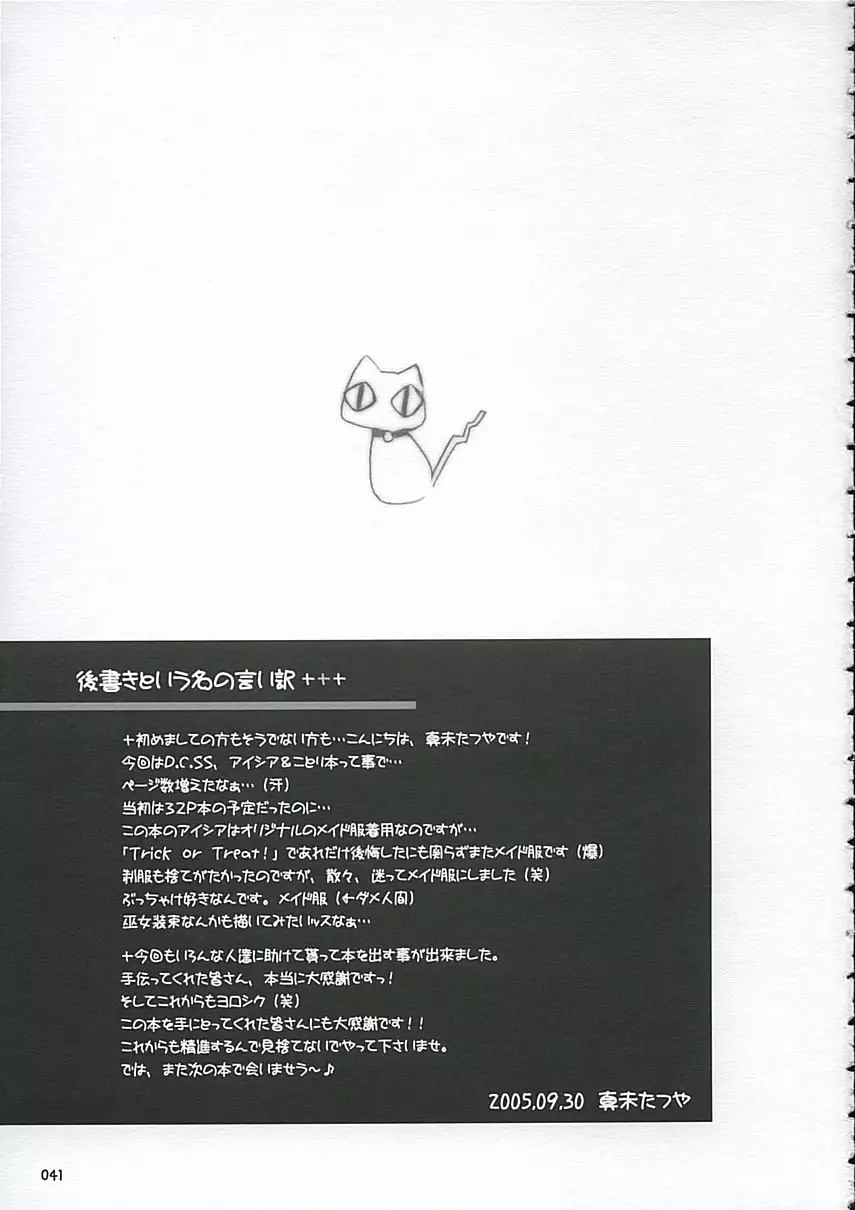 後書きという名の言い訳+++
+初めましての方もそうでない方も…こんにちは、真未たつやです!
今回はD.C.S.S、アイシア&ことり本って事で…
ページ数増えたなぁ…(汗)
当初は32P本の予定だったのに…
この本のアイシアはオリジナルのメイド服着用なのですが…
「Trick or Treat!」であれだけ後悔したにも関らずまたメイド服です(爆)
制服も捨てがたかったのですが、散々、迷ってメイド服にしました(笑)
ぶっちゃけ好きなんです。メイド服(←ダメ人間)
巫女装束なんかも描いてみたいッスなぁ…
+今回もいろんな人達に助けて貰って本を出す事が出来ました。
手伝ってくれた皆さん、本当に大感謝ですっ!
そしてこれからもヨロシク(笑)
この本を手にとってくれた皆さんにも大感謝です!!
これからも精進するんで見捨てないでやって下さいませ。
では、また次の本で会いませう~♪
2005.09.30 真未たつや
041